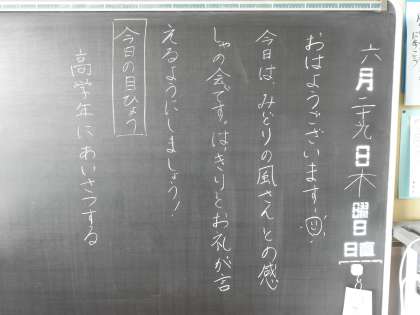 六月二十九日木曜日
日直
おはようございます
今日は みどりの風さんとの感
しゃの会です。はっきりとお礼が言
えるようにしましょう!
今日の目ひょう
高学年にあいさつする